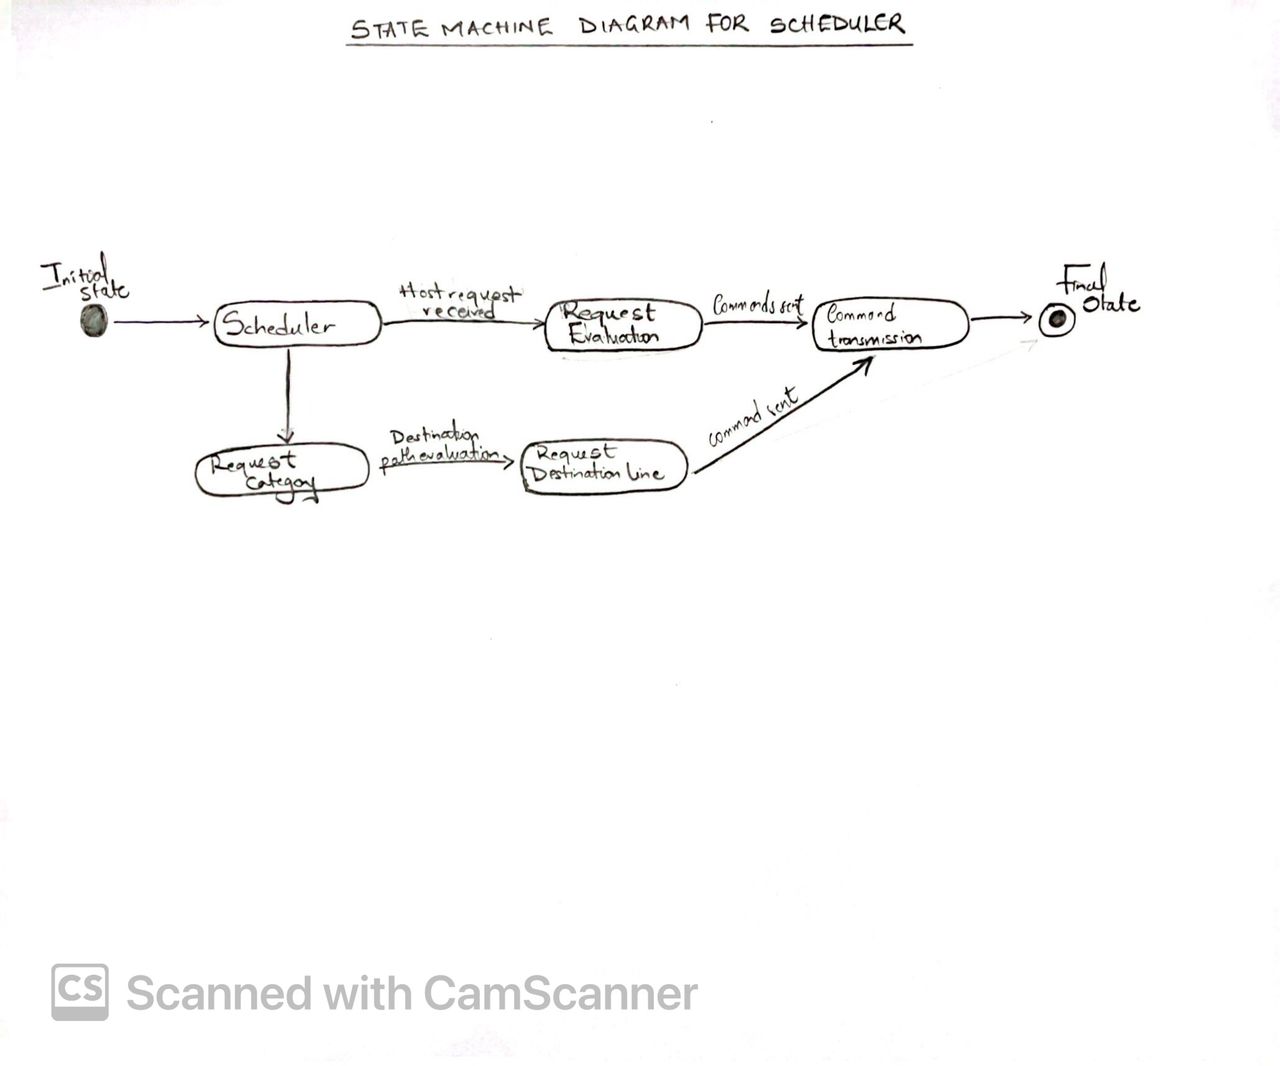 STATE MACHINE DIAGRAM FOR SCHEDULER
Initial
state
Scheduler
Host request
received
Request
Evaluation
Commands sent
Command
transmission
Final
State
Request
Category
Destination
path evaluation
Request
Destination line
command sent
CS Scanned with CamScanner